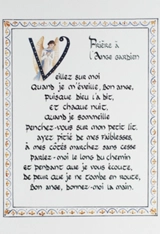 Prière à
l'Ange gardien
Veillez sur moi
quand je m'éveille, bon ange,
puisque dieu l'a dit,
et chaque nuit,
quand je sommeille
penchez-vous sur mon petit lit.
ayez pitié de mes faiblesses,
à mes côtés marchez sans cesse
parlez-moi le long du chemin
et pendant que je vous écoute,
de peur que je ne tombe en route,
bon ange, donnez-moi la main.